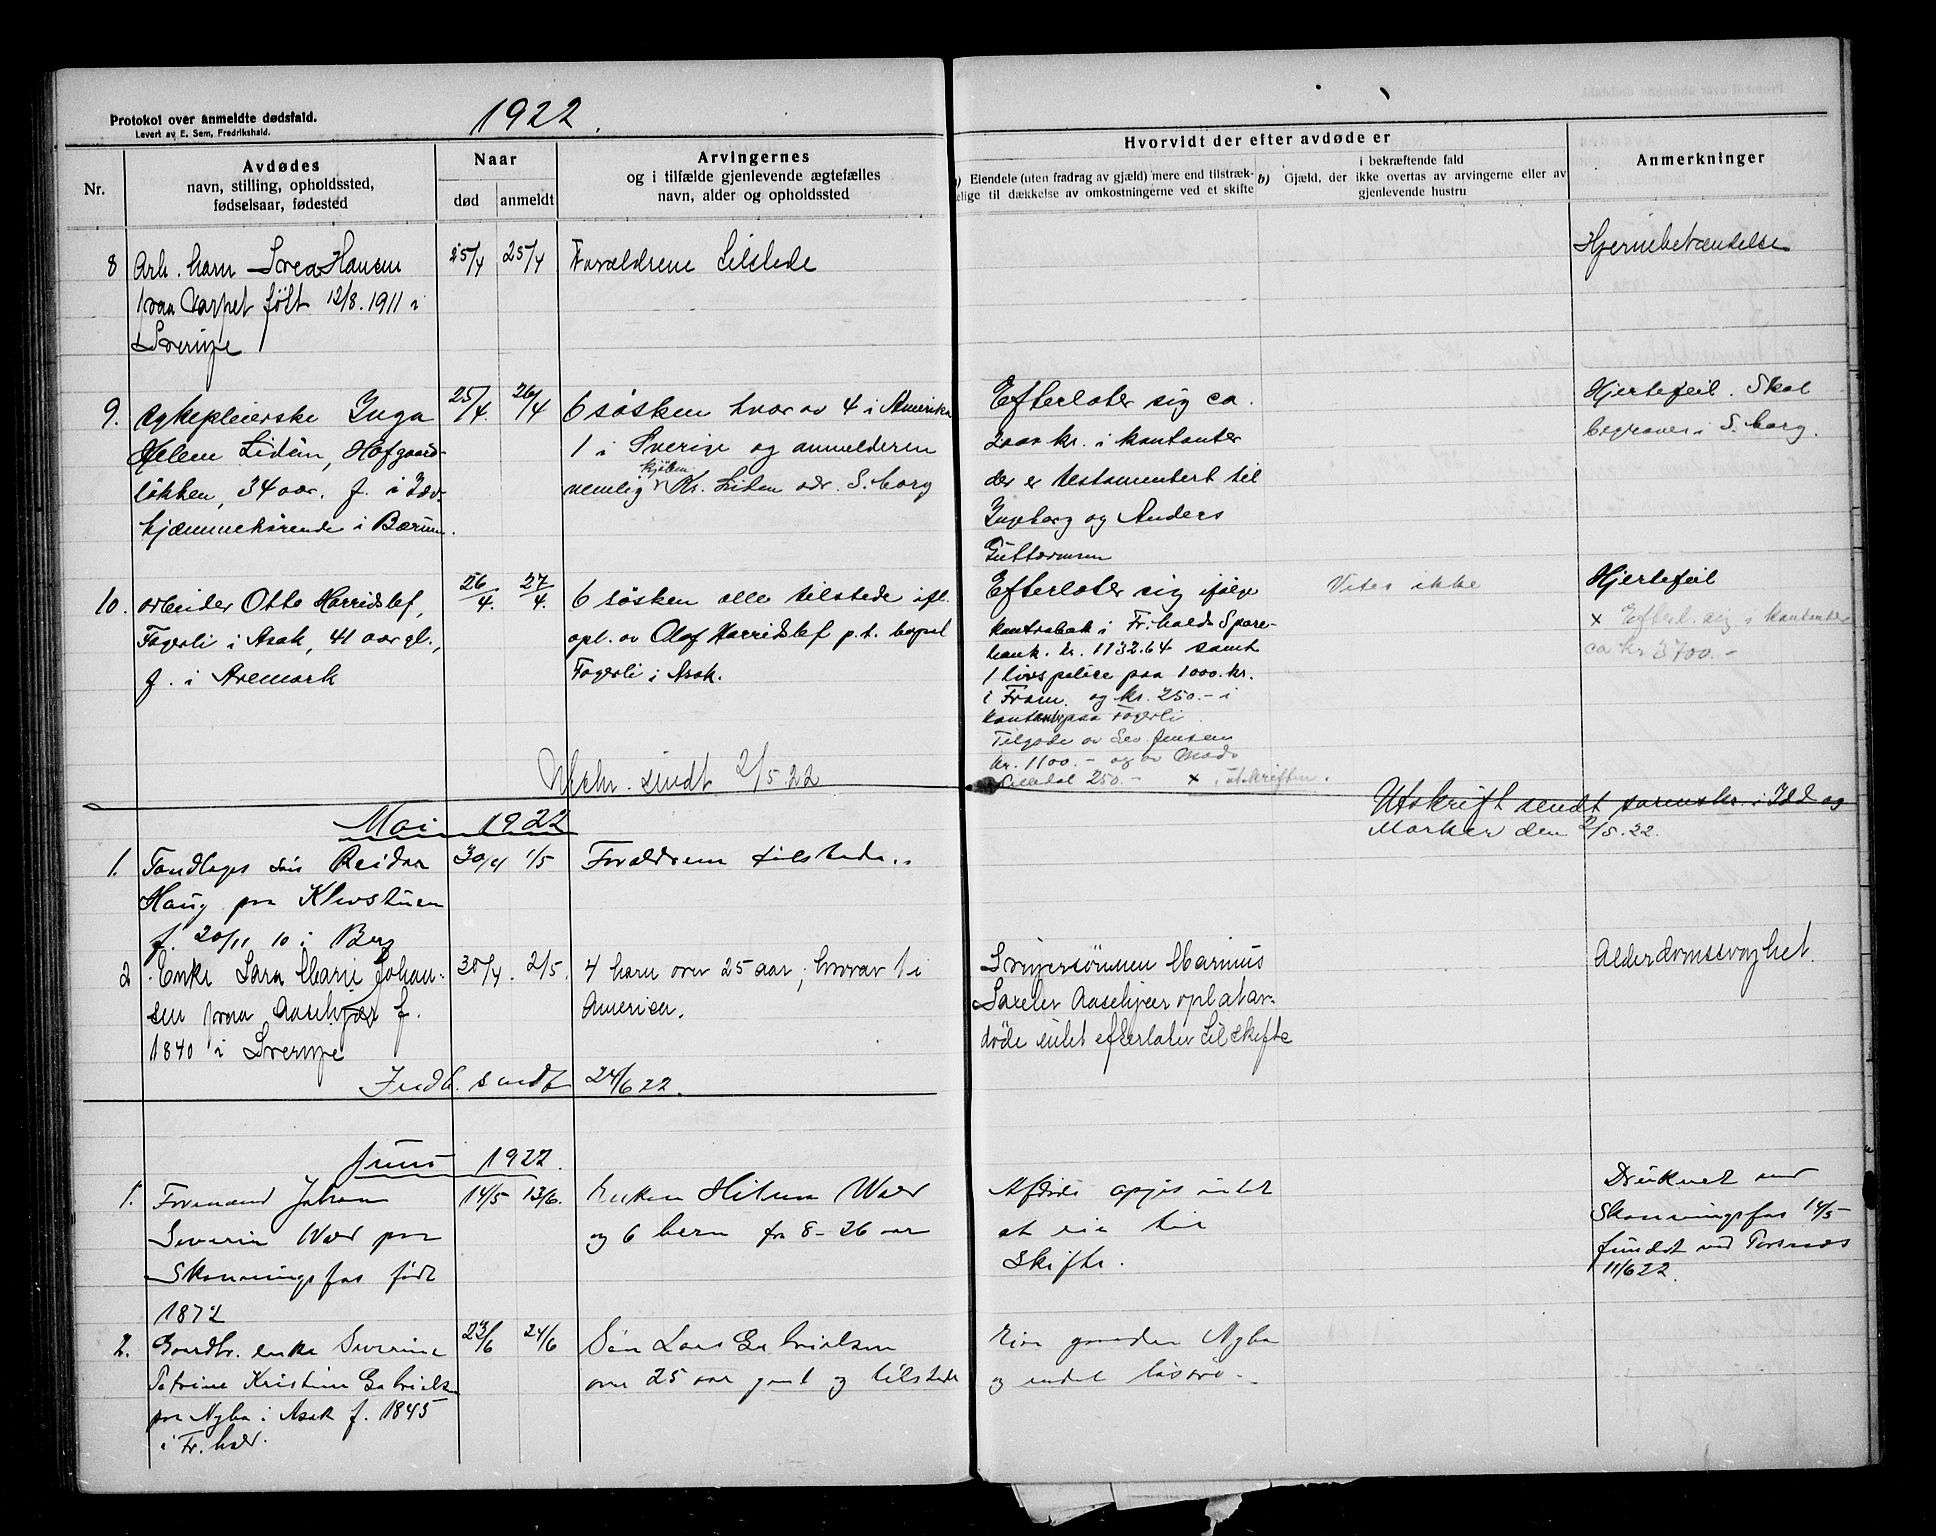 Protokol over anmeldte dødsfald.
Levert av E. Sem, Fredrikshald.
1922.
Nr.
Avdødes
navn, stilling, opholdssted,
fødselsaar, fødested
Naar
død
anmeldt
Arvingernes
og i tilfælde gjenlevende ægtefælles
navn, alder og opholdssted
Hvorvidt der efter avdøde er
Eiendele (uten fradrag av gjæld) mere end tilstræk-
elige til dækkelse av omkostningerne ved et skifte
b) Gjæld, der
i bekræftende fald
ikke overtas av arvingerne eller av
gjenlevende hustru
Anmerkninger
8 Arb. barn Svea Hansen
paa Torpet født 12/8.1911 i
Sverige
25/4 25/4
Forældrene tilstede
Hjernebetændelse
9. Sykepleierske Inga
Helene Lidén, Hofgaard-
løkken, 34 aar. f. i Idd
hjemmehørende i Bærum.
25/4. 26/4
6 søsken hvor av 4 i Amerika
1 i Sverige og anmelderen
nemlig Kr. Liden adr. S.borg
Efterlater sig ca.
2000 kr. i kontanter
der er testamentert til
Ingeborg og Anders
Guttormsen
Hjertefeil. Skal
begraves i S.borg.
10. arbeider Otto Harridslef,
Fagerli i Asak, 41 aar gl.,
f. i Aremark
26/4. 27/4.
6 søsken alle tilstede ifl.
opl. av Olaf Harridslef p.t. bopæl
Fagerli i Asak.
Efterlater sig ifølge
kontrabok i Fr.halds Spare-
bank. kr. 1132.64 samt
1 livspolice paa 1000. kr.
i Fram. og kr. 250.- i
kontanter paa Fagerli
Tilgode av Lev. Jensen
kr. 1100.- og av Mads
250.- x i utskriften.
Vites ikke
Hjertefeil
x Efterl. sig i kontanter
ca kr 3700.-
sendt 2/5.22
Utskrift sendt sorenskr. i Idd og
Marker den 2/5.22.
Mai 1922
1. Tandlæges søn Reidar
Haug paa Klevstuen
f. 20/11 10 i Berg
30/4 1/5
Forældrene tilstede.
2 Enke Sara Marie Johan-
sen paa Aasekjær f.
1840 i Sverige
30/4. 2/5.
4 barn over 25 aar, hvorav 1 i
Amerika.
Svigersønnen Marinus
Aasekjær opl at av-
døde intet efterlater til skifte
Alderdomssvaghet.
Indb. sendt 24/6 22.
Juni 1922.
1. Formand Johan
Severin Wold paa
Skonningsfos født
1872
14/5 13/6.
Enken Hilma Wold
og 6 barn fra 8-26 aar
Afdøde opgis intet
at eie til
skifte.
Druknet ved
Skonningsfos 14/5
fundet ved Torsnæs
11/6 22.
2. Gaardbr. enke Severine
Petrine Kristine Gabrielsen
paa Nybo i Asak f. 1845
i Fr.hald.
23/6 24/6
Søn Lars Gabrielsen
over 25 aar gml og tilstede
Eier gaarden Nybo
og endel løsøre.